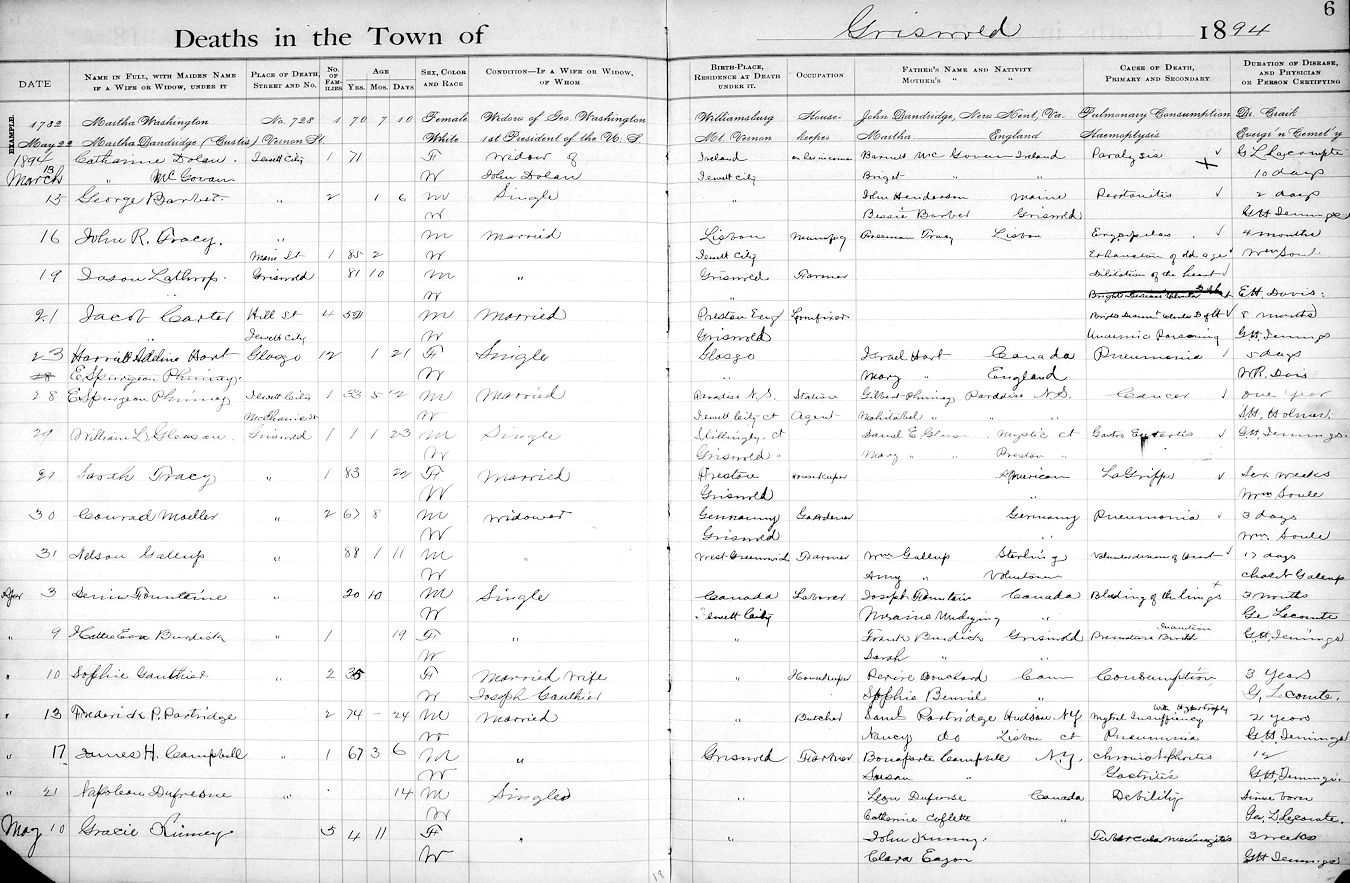 Deaths in the Town of Griswold 1894 6
DATE NAME IN FULL, WITH MAIDEN NAME IF A WIFE OR WIDOW, UNDER IT PLACE OF DEATH, STREET AND NO. NO. OF FAMILIES AGE YRS. MOS. DAYS SEX, COLOR AND RACE CONDITION—IF A WIFE OR WIDOW, OF WHOM BIRTH-PLACE, RESIDENCE AT DEATH UNDER IT. OCCUPATION FATHER'S NAME AND NATIVITY MOTHER'S " " CAUSE OF DEATH, PRIMARY AND SECONDARY DURATION OF DISEASE, AND PHYSICIAN OR PERSON CERTIFYING
EXAMPLE. 1782 Martha Washington No. 728 1 70 7 10 Female Widow of Geo. Washington Williamsburg House- John Dandridge, New Kent, Va. Pulmonary Consumption Dr. Craik
May 22 Martha Dandridge (Custis) Vernon St. White 1st President of the U. S. Mt. Vernon keeper Martha England Haemoptysis Everg'n Cemet'y
1894 Catharine Dolan. Jewett City 1 71 F Widow of Ireland on her income Barnett McGovan Ireland Paralysis G. L. Lacompte
March 13 " McGovan W John Dolan Jewett City Briget " " 10 days
15 George Barber " 2 1 6 M Single " John Henderson Maine Peritonitis 2 days
W Bessie Barber Griswold GH Jennings
16 John R. Tracy. " M Married Lisbon Manufog Freeman Tracy Lisbon Erysipelas 4 months
Main St 1 85 2 W Jewett City Exhaustion of old age Wm Soule
19 Jason Lathrop. Griswold 81 10 M " Griswold Farmer Dilitation of the heart
" W " E H Davis.
21 Jacob Carter Hill St 4 M Married Preston Eng 8 months
" Jewett City W Griswold Uraemic Poisoning GH Jennings
23 Harriet Adeline Hart Glasgo 12 1 21 F Single Glasgo Israel Hart Canada Pneumonia 5 days
28 E Spurgeon Phinney. W " Mary " England WR. Davis
28 E Spurgeon Phinney Jewett City 1 33 5 12 M Married Paradise N.S. Station Gilbert Phinney Paradise N.S. Cancer One Year
Mechanic St W Jewett City Ct Agent Mahitabel " " Holmes.
29 William L. Gleason. Griswold 1 1 1 23 M Single Killingly. Ct Mystic Ct Gastro Enteritis GH Jennings
W Griswold " Mary " " Preston "
29 Sarah Tracy " 1 83 22 F Married Preston Housekeeper American La Grippe Six weeks
W Griswold " Wm Soule
30 Conrad Moeller " 2 67 8 M Widower Germany Gardener Germany Pneumonia 3 days
W Griswold " Wm Soule
31 Nelson Gallup " 88 1 11 M " West Greenwich Farmer Wm Gallup Sterling Valvular disease of Heart 17 days
W Amy " Voluntown Gallup
Apr 3 Denis Fountaine 20 10 M Single Canada Laborer Joseph Fountain Canada Bleeding of the lungs 3 months
W Jewett City " Ge Lecomte
" 9 Hattie Eva Burdick " 1 19 F " " Frank Burdick Griswold Premature Birth Inanition GH Jennings
W Sarah " "
" 10 Sophie Gauthier " 2 35 F Married Wife " Housekeeper Bouchard Can Consumption 3 Years
W Joseph Gauthier Sophie " G. LeComte.
" 13 Frederick P. Partridge 2 74 – 24 M Married " Butcher Saml Partridge Hudson NY Mytral Insufficiency with Hypertrophy 2 years
W Nancy do Lisbon Ct Pneumonia GH Jennings
" 17 James H. Campbell " 1 67 3 6 M " Griswold Farmer Bonaparte Campbell N.Y. Chronic Nephritis 12
W Susan " Gastritis GH Jennings.
" 21 Napoleon Dufresne " 14 M Single " Leon Canada Debility Since born
W Catherine " Geo. L Lecomte.
May 10 Gracie Kinney 5 4 11 F " " John Kinney. Tubercular Meningitis 3 weeks
W Clara Eagan GH Jennings
18